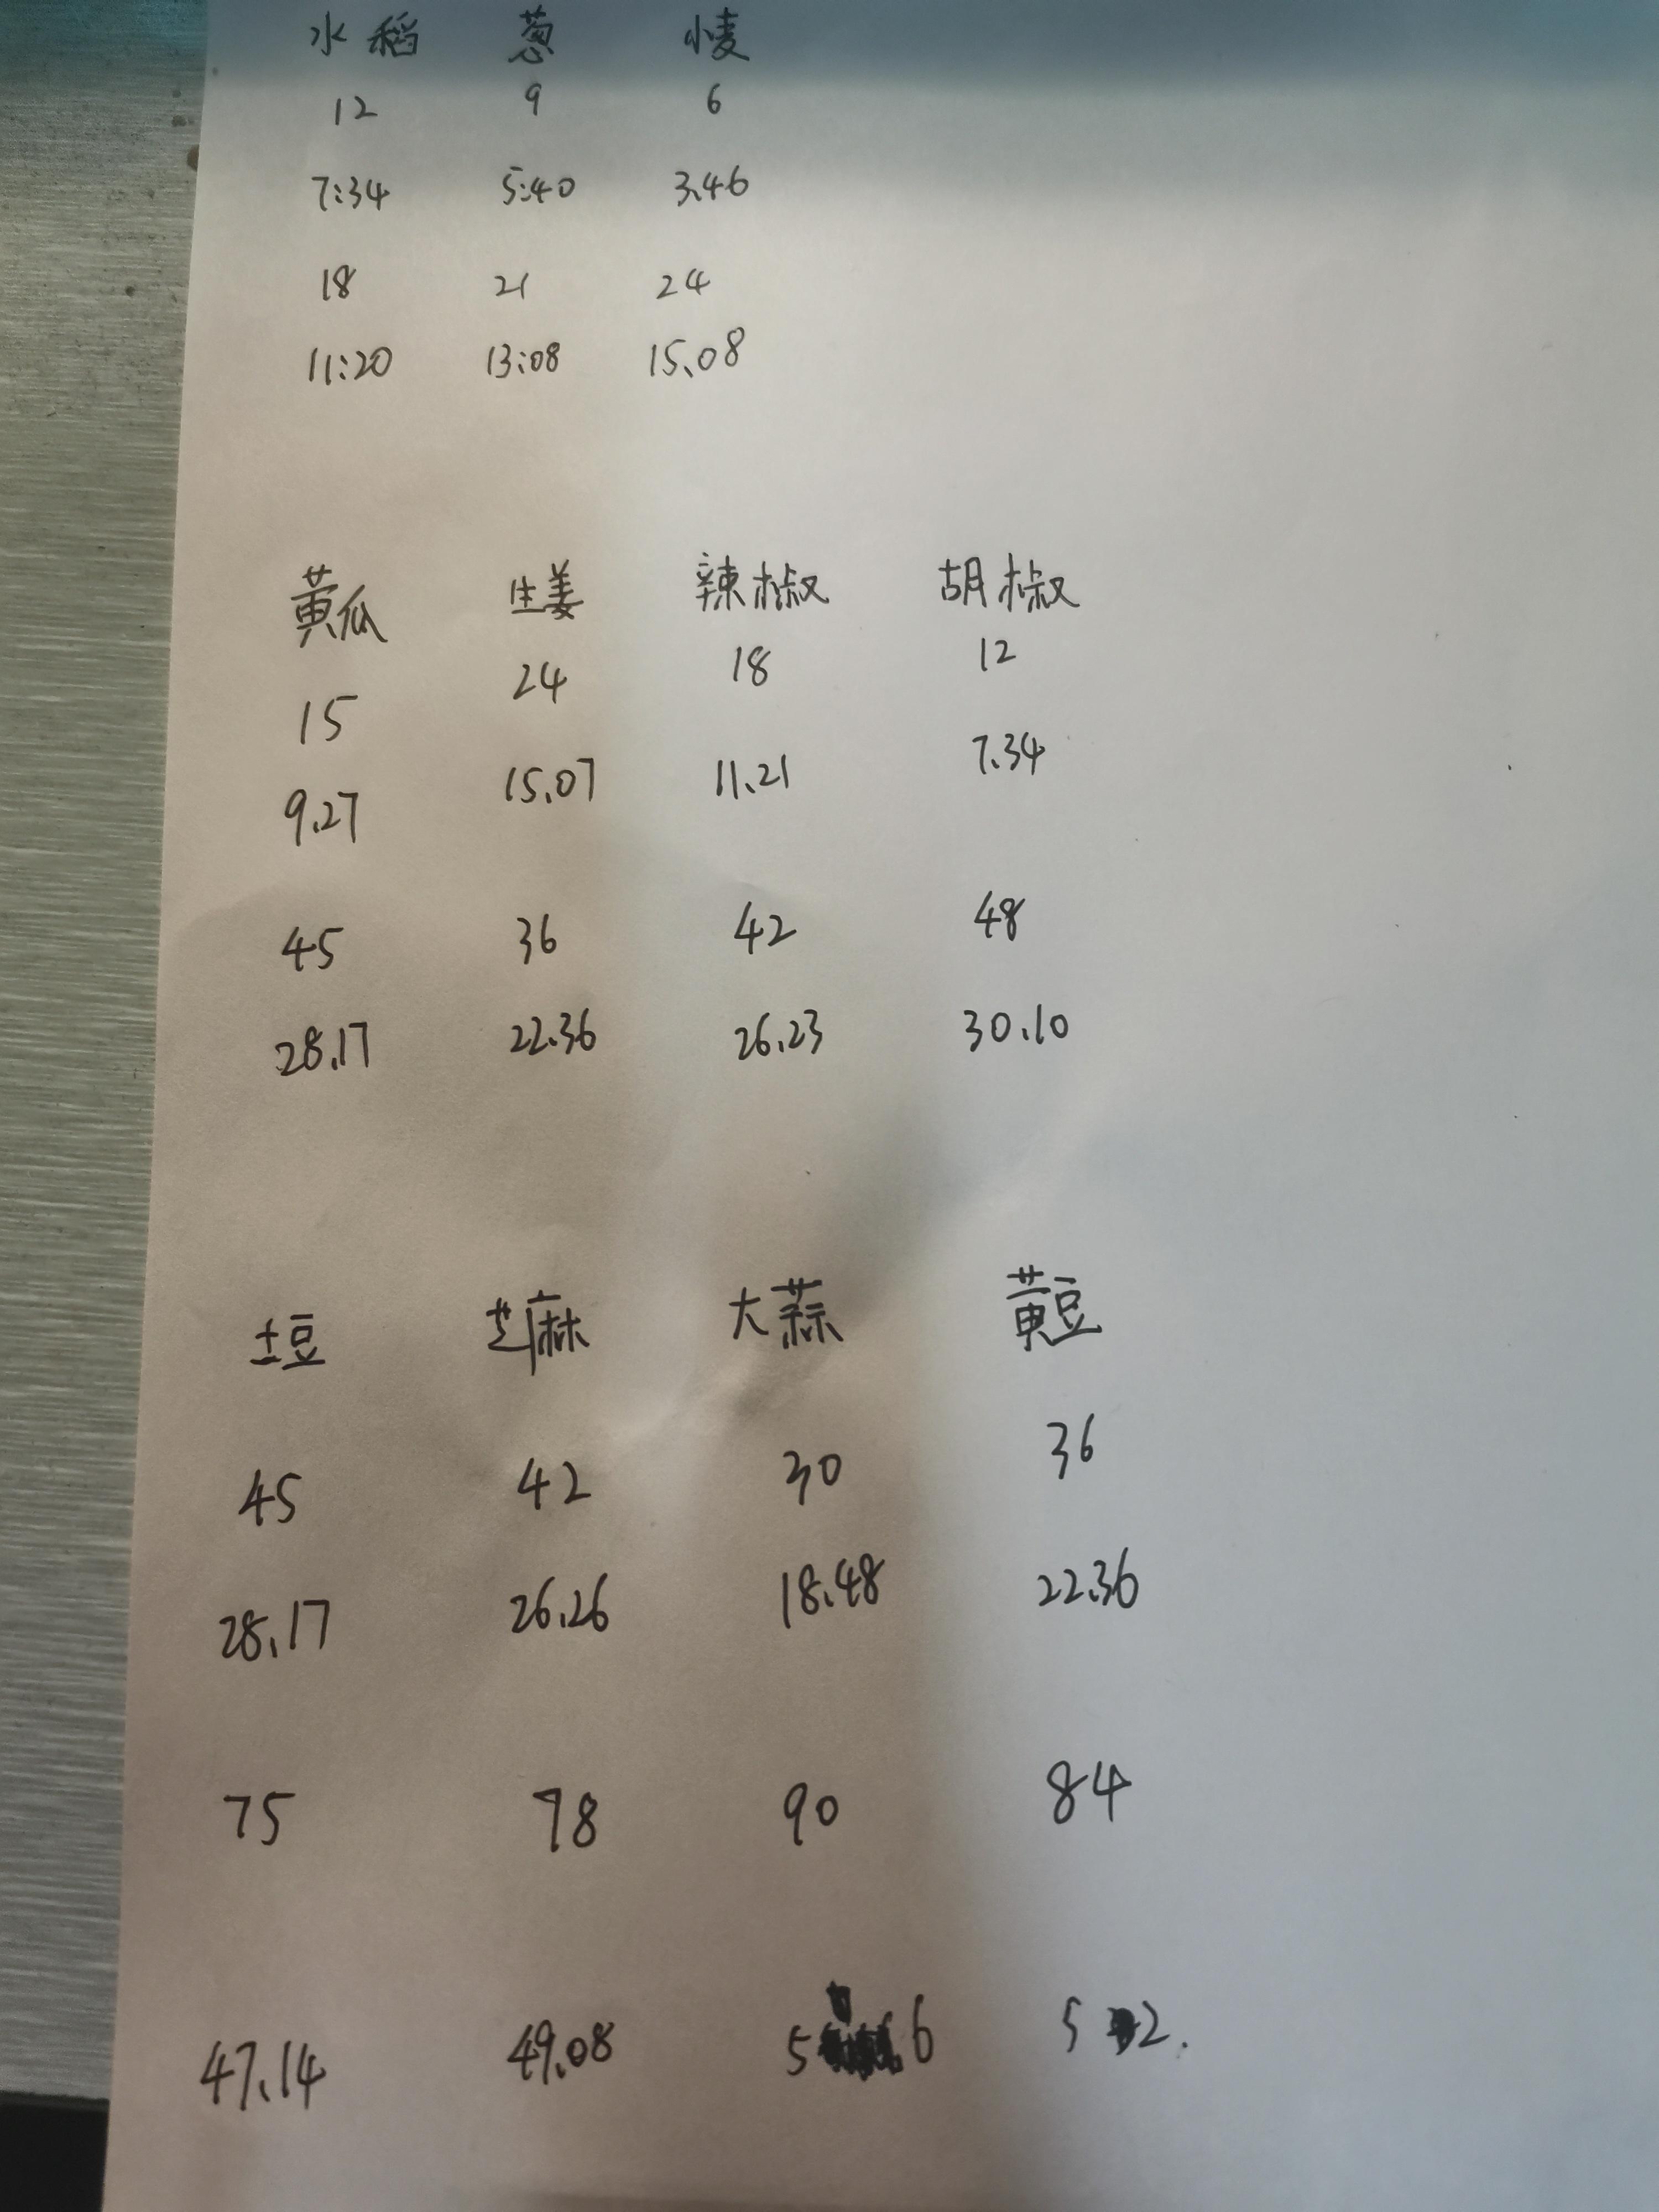 水稻 葱 小麦
12 9 6
7:34 5:40 3.46
18 21 24
11:20 13:08 15.08
黄瓜 生姜 辣椒 胡椒
15 24 18 12
9.27 15.07 11.21 7.34
45 36 42 48
28.17 22.36 26.23 30.10
土豆 芝麻 大蒜 黄豆
45 42 30 36
28.17 26.26 18.48 22.36
75 78 90 84
47.14 49.08 5 6 5 2.